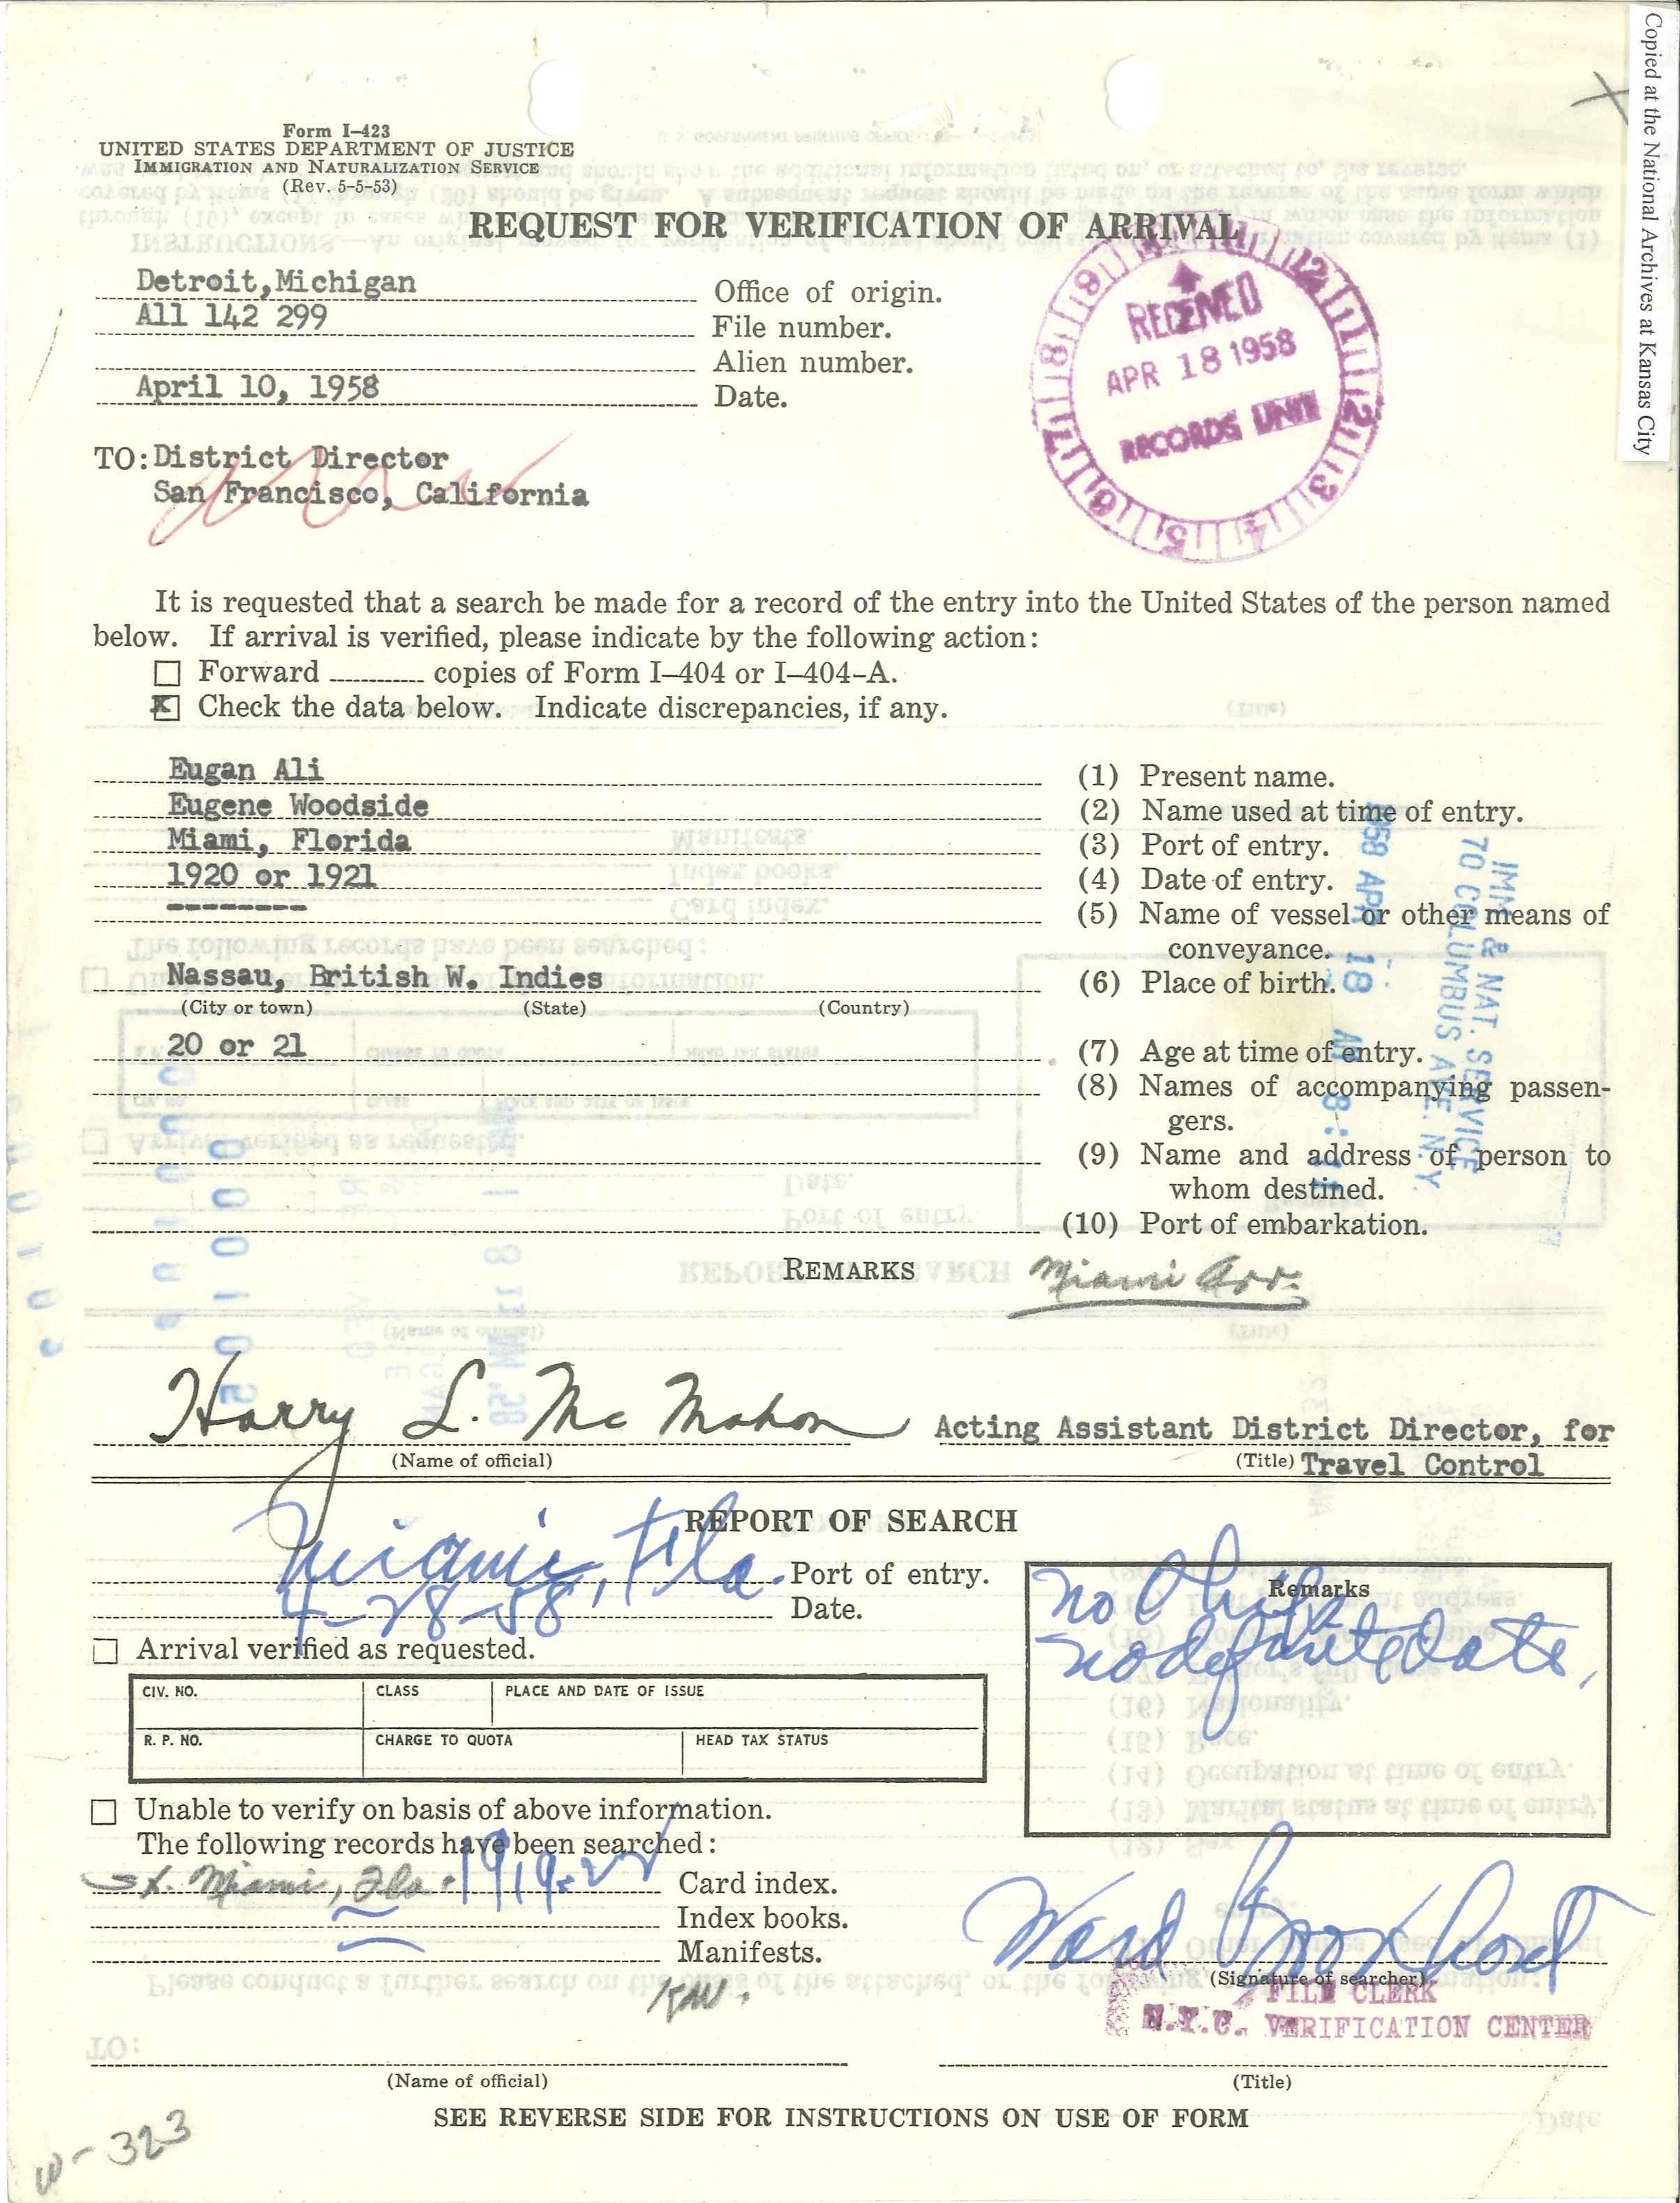 Copied at the National Archives at Kansas City
Form I-423
UNITED STATES DEPARTMENT OF JUSTICE
IMMIGRATION AND NATURALIZATION SERVICE
(Rev. 5-5-53)
REQUEST FOR VERIFICATION OF ARRIVAL
Detroit, Michigan Office of origin.
All 142 299 File number.
Alien number.
April 10, 1958 Date.
RECEIVED
APR 18 1958
RECORDS UNIT
12 1 2 3 4 5 6 7 8 9
TO: District Director
San Francisco, California
It is requested that a search be made for a record of the entry into the United States of the person named
below. If arrival is verified, please indicate by the following action:
Forward copies of Form I-404 or I-404-A.
X Check the data below. Indicate discrepancies, if any.
Eugan Ali (1) Present name.
Eugene Woodside (2) Name used at time of entry.
Miami, Florida (3) Port of entry.
1920 or 1921 (4) Date of entry.
-------- (5) Name of vessel or other means of
conveyance.
Nassau, British W. Indies (6) Place of birth.
(City or town) (State) (Country)
20 or 21 (7) Age at time of entry.
(8) Names of accompanying passen-
gers.
(9) Name and address of person to
whom destined.
(10) Port of embarkation.
IMM & NAT. SERVICE
70 COLUMBUS AVE. N.Y.
1958 APR 18 AM 8:
REMARKS Miami Arr.
Harry L. McMahon Acting Assistant District Director, for
(Name of official) (Title) Travel Control
REPORT OF SEARCH
Miami, Fla. Port of entry.
4-28-58 Date.
Remarks
no
no definite date,
Arrival verified as requested.
CIV. NO. CLASS PLACE AND DATE OF ISSUE
R. P. NO. CHARGE TO QUOTA HEAD TAX STATUS
Unable to verify on basis of above information.
The following records have been searched:
Miami, Fla. 1919-22 Card index.
Index books.
Manifests.
Ward
(Signature of searcher)
FILE CLERK
N.Y.C. VERIFICATION CENTER
(Name of official) (Title)
SEE REVERSE SIDE FOR INSTRUCTIONS ON USE OF FORM
W-323